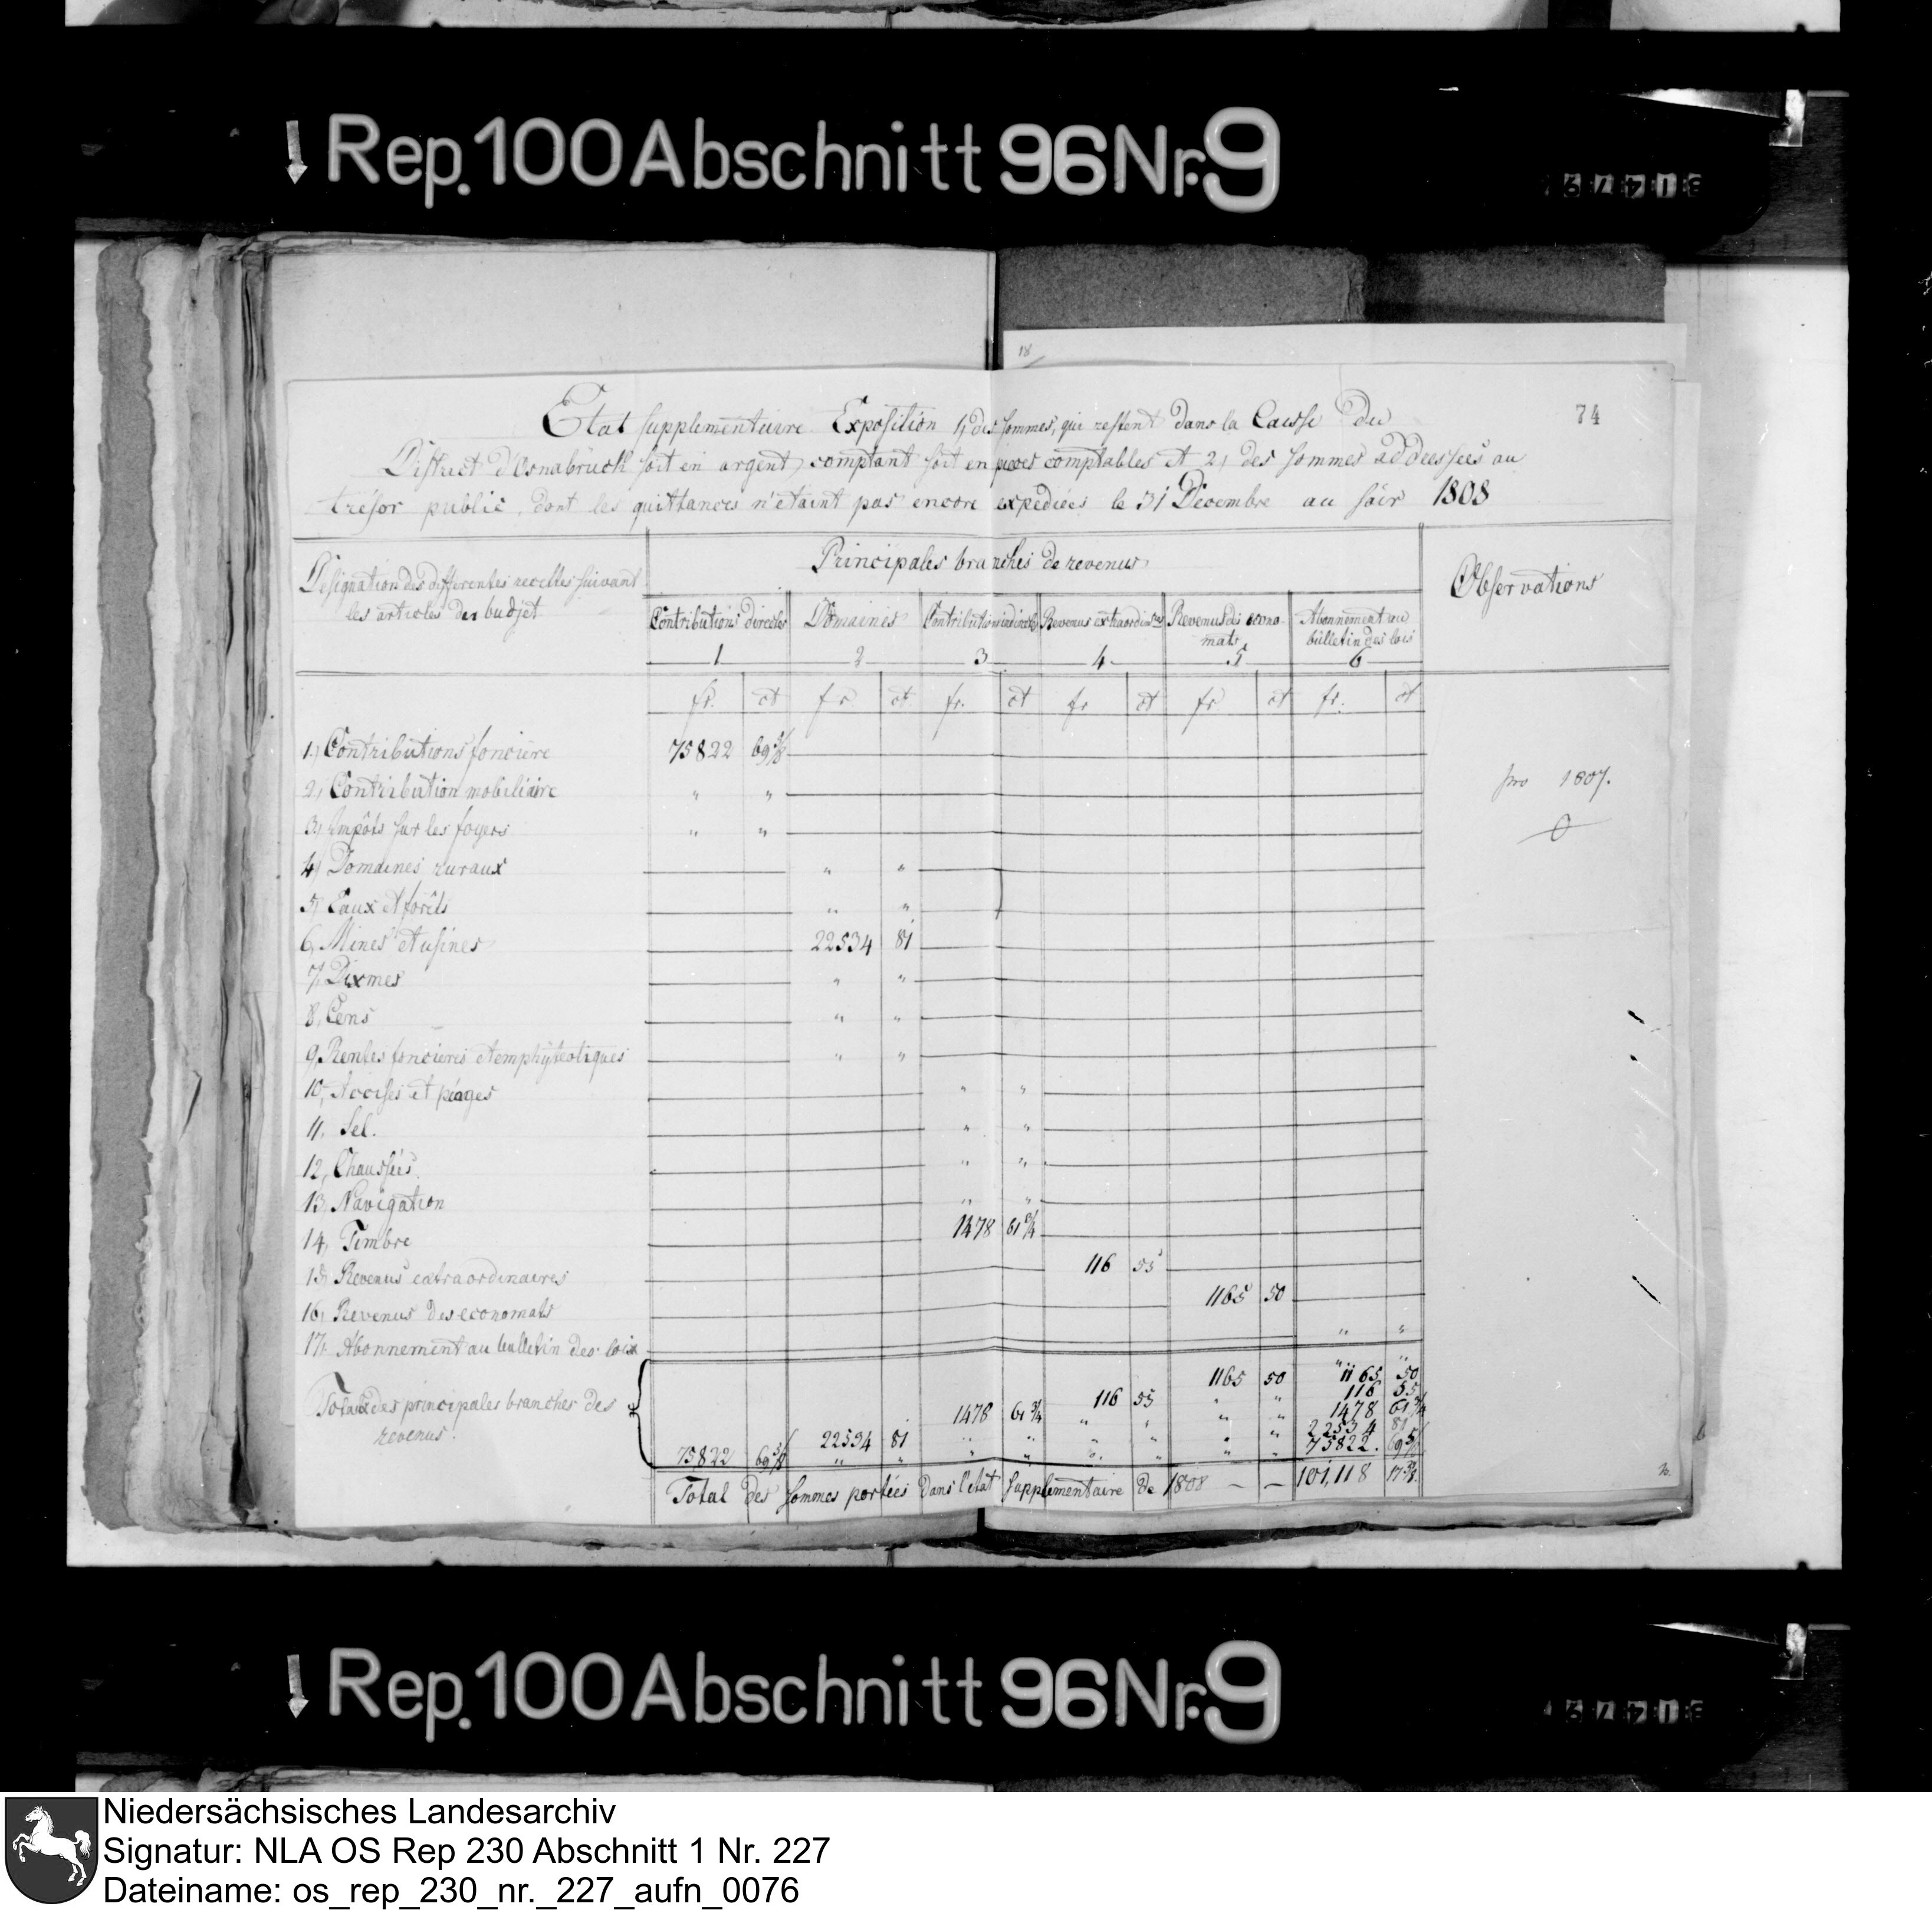 Rep. 100 Abschnitt 96 Nr. 9
18
74
Etat supplementaire Exposition 1, des sommes, qui restent dans la Caisse du
District d'Osnabrück soit en argent comptant soit en pieces comptables et 2, des sommes addressées au
trésor public, dont les quittances n'etaint pas encore expediées le 31 Decembre au soir 1808
Designation des differentes recettes suivant les articles du budjet
Principales branches de revenus
Observations
Contributions directes Domaines Contributions indirectes Revenus extraordin.res Revenus des econo-mats Abonnement au bulletin des lois
1 2 3 4 5 6
fr. ct fr ct fr. ct fr ct fr ct fr. ct
1.) Contributions fonciere 75822 69 5/8
2, Contribution mobiliaire " "
pro 1807.
3, Impôts sur les foyers " "
0
4, Domaines ruraux " "
5, Eaux et forêts " "
6, Mines et usines 22534 81
7, Dixmes " "
8, Cens " "
9, Rentes foncieres et emphyteotiques " "
10, Accises et péages " "
11, Sel. " "
12, Chaussées " "
13, Navigation " "
14, Timbre 1478 61 3/4
15, Revenus extraordinaires 116 55
16, Revenus des economats 1165 50
17, Abonnement au bulletin des loix " "
Totaux des principales branches des revenus.
" "
1165 50 1165 50
116 55 " " 116 55
1478 61 3/4 " " " " 1478 61 3/4
22534 81 " " " " " " 22534 81
75822 69 5/8 " " " " " " " " 75822. 69 5/8
Total des sommes portées dans l'etat supplementaire de 1808 — — 101,118 17 3/8
Rep. 100 Abschnitt 96 Nr. 9
Niedersächsisches Landesarchiv
Signatur: NLA OS Rep 230 Abschnitt 1 Nr. 227
Dateiname: os_rep_230_nr._227_aufn_0076